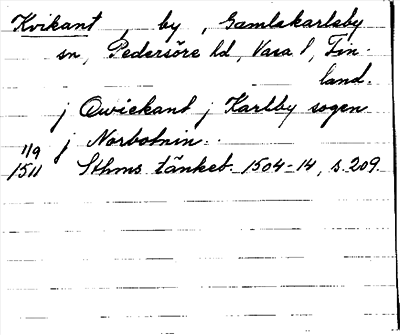 Kvikant, by, Gamlakarleby
sn, Pedersöre hd, Vasa l, Fin-
land.
j Qwickant j Karlby sogen
j Norbotnin.
1/9 1511 Sthms tänkeb. 1504-14, s. 209.